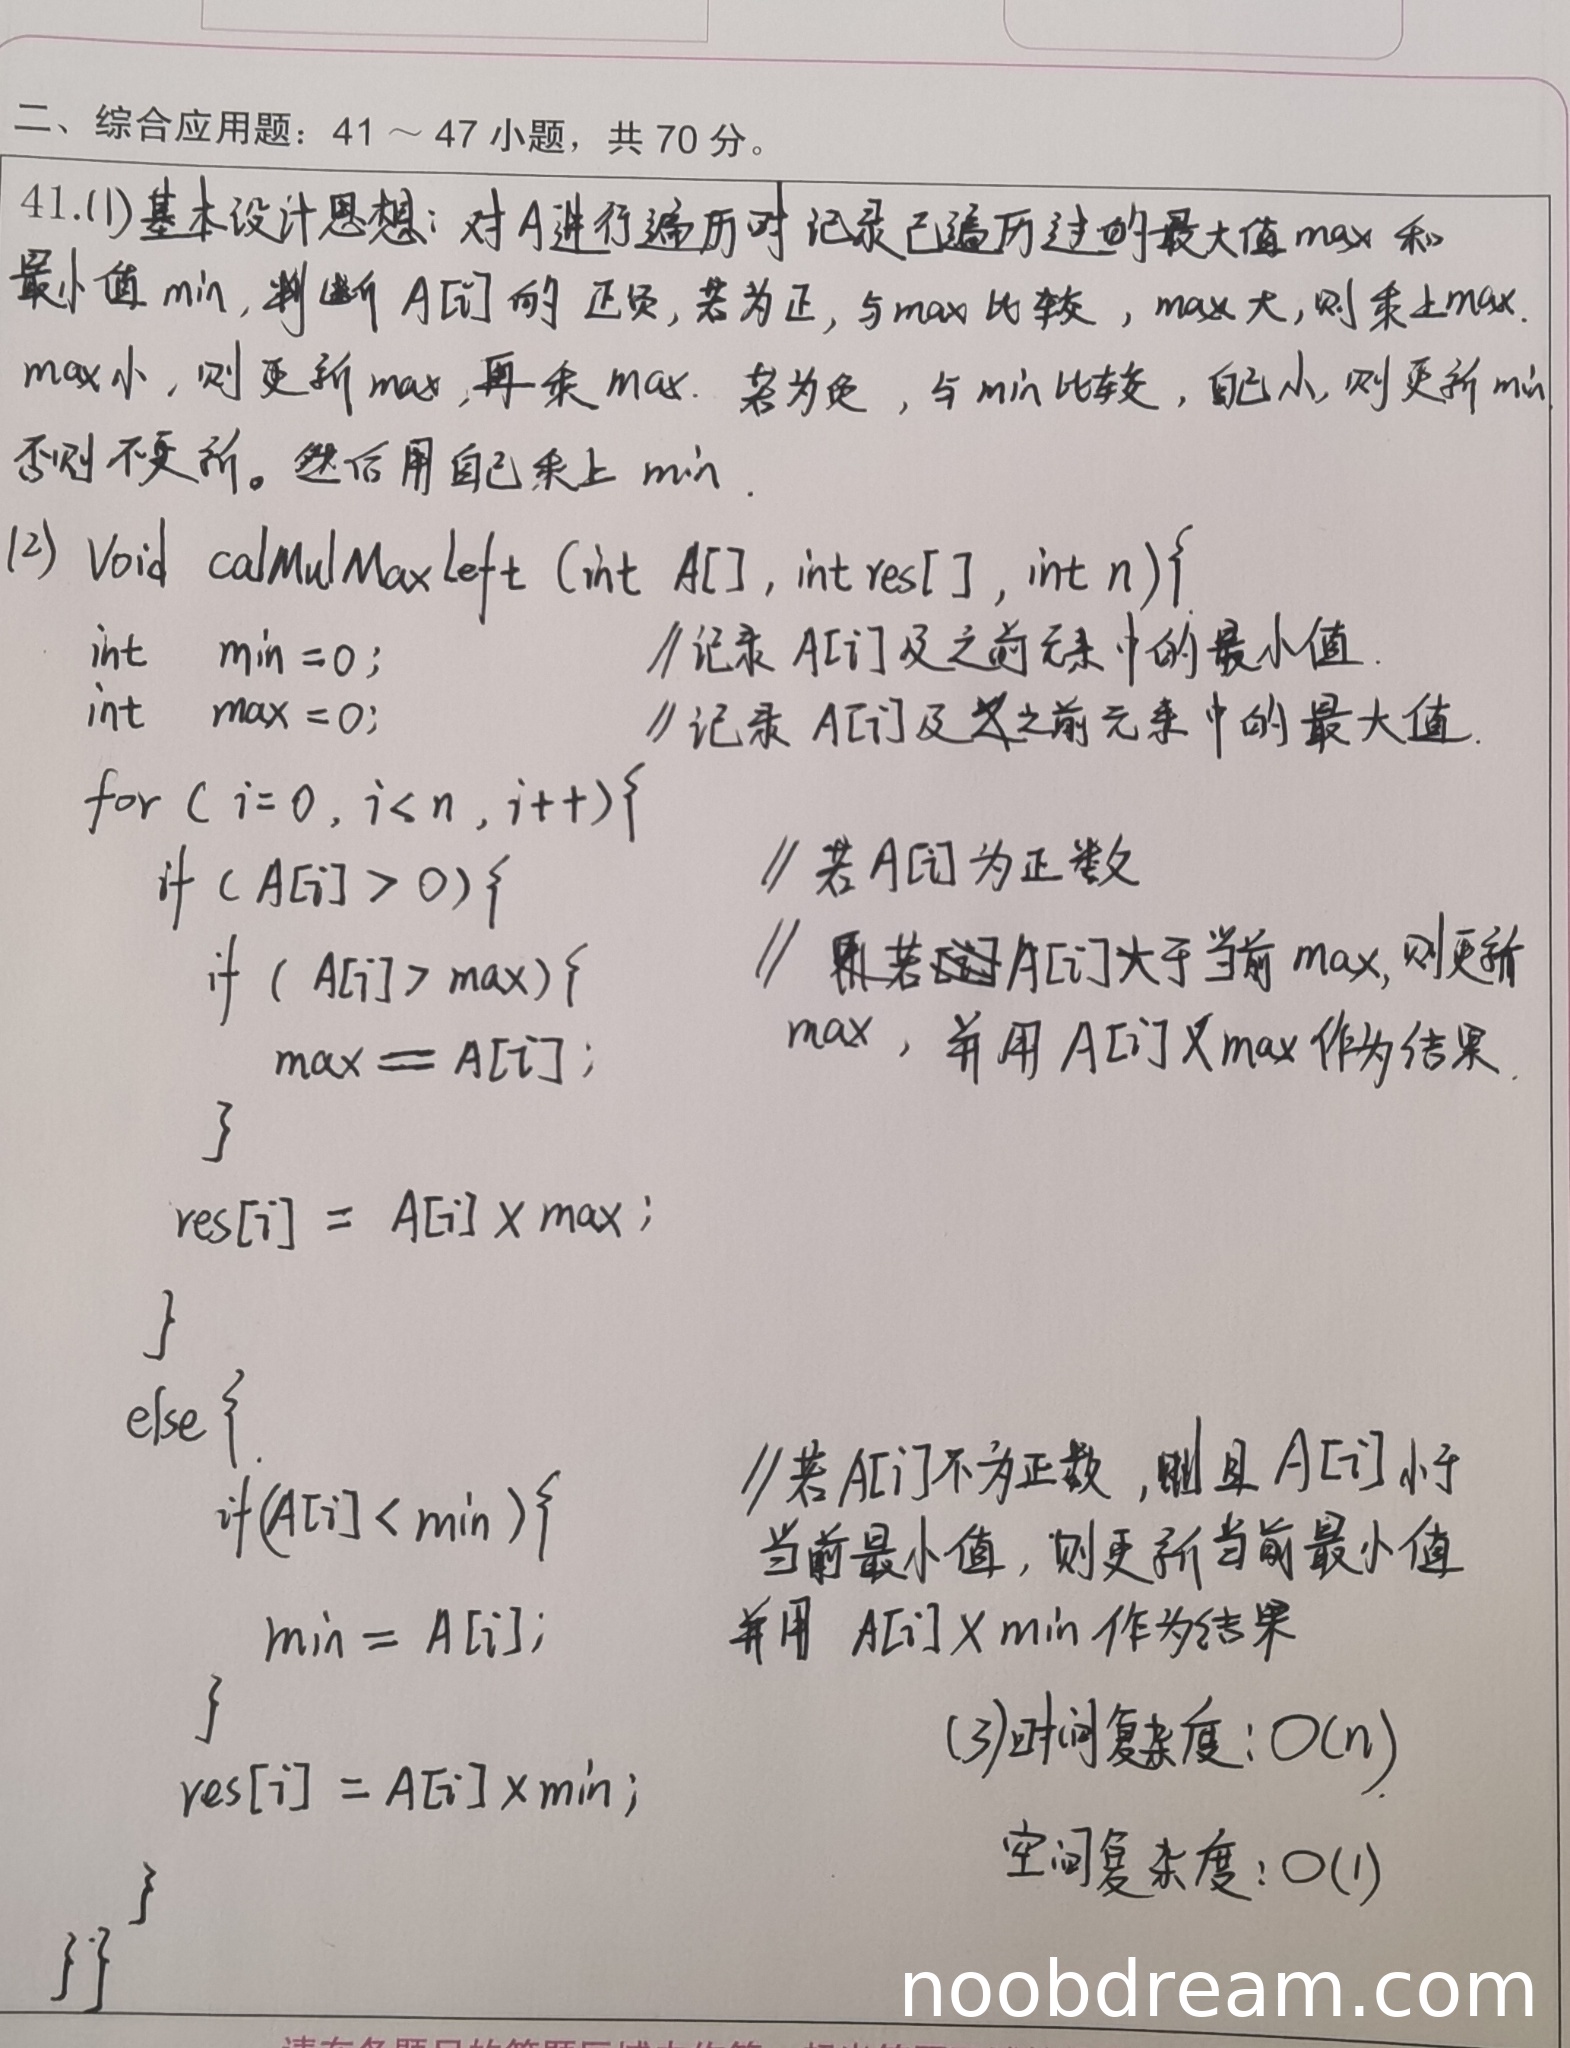 二、综合应用题：41～47 小题，共 70 分。
41.(1)基本设计思想：对A进行遍历时记录已遍历过的最大值max和
最小值min，判断A[i]的正负，若为正，与max比较，max大，则乘上max.
max小，则更新max，再乘max. 若为负，与min比较，自己小，则更新min，
否则不更新。然后用自己乘上min.
(2) Void calMulMaxLeft (int A[], int res[], int n){
int min = 0; //记录A[i]及之前元素中的最小值.
int max = 0; //记录A[i]及之前元素中的最大值.
for ( i=0, i<n, i++){
if ( A[i] > 0){ //若A[i]为正数
if ( A[i] > max){ //若A[i]大于当前max,则更新
max = A[i]; max，并用A[i]×max作为结果.
}
res[i] = A[i] × max;
}
else{
if(A[i] < min ){ //若A[i]不为正数，且A[i]小于
当前最小值，则更新当前最小值
min = A[i]; 并用A[i]×min作为结果
}
(3)时间复杂度：O(n).
res[i] = A[i] × min;
空间复杂度：O(1)
}
}}
noobdream.com